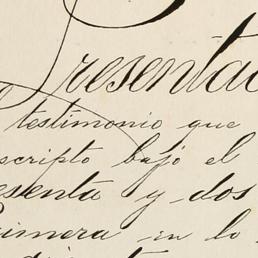 Presentad
testimonio que
scripto bajo el
esenta y dos
rimera en lo